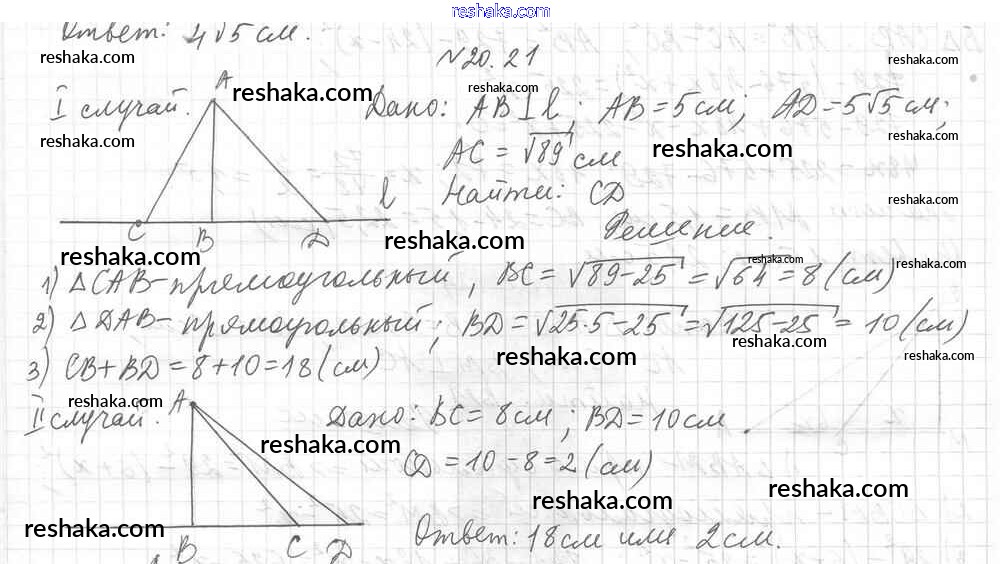 reshaka.com
Ответ: 4√5 см.
reshaka.com
reshaka.com
N20.21
reshaka.com
A
I случай.
reshaka.com
Дано: AB⊥l; AB=5см; AD=5√5 см;
reshaka.com
reshaka.com
AC=√89 см
reshaka.com
l
Найти: CD
reshaka.com
C B D
Решение.
reshaka.com
reshaka.com
reshaka.com
reshaka.com
1) △CAB-прямоугольный, BC=√89-25=√64=8(см)
2) △DAB-прямоугольный; BD=√25·5-25=√125-25=10(см)
reshaka.com
reshaka.com
3) CB+BD=8+10=18(см)
reshaka.com
A
II случай.
Дано: BC=8см; BD=10см.
reshaka.com
CD=10-8=2(см)
reshaka.com
reshaka.com
reshaka.com
B C D
Ответ: 18см или 2см.